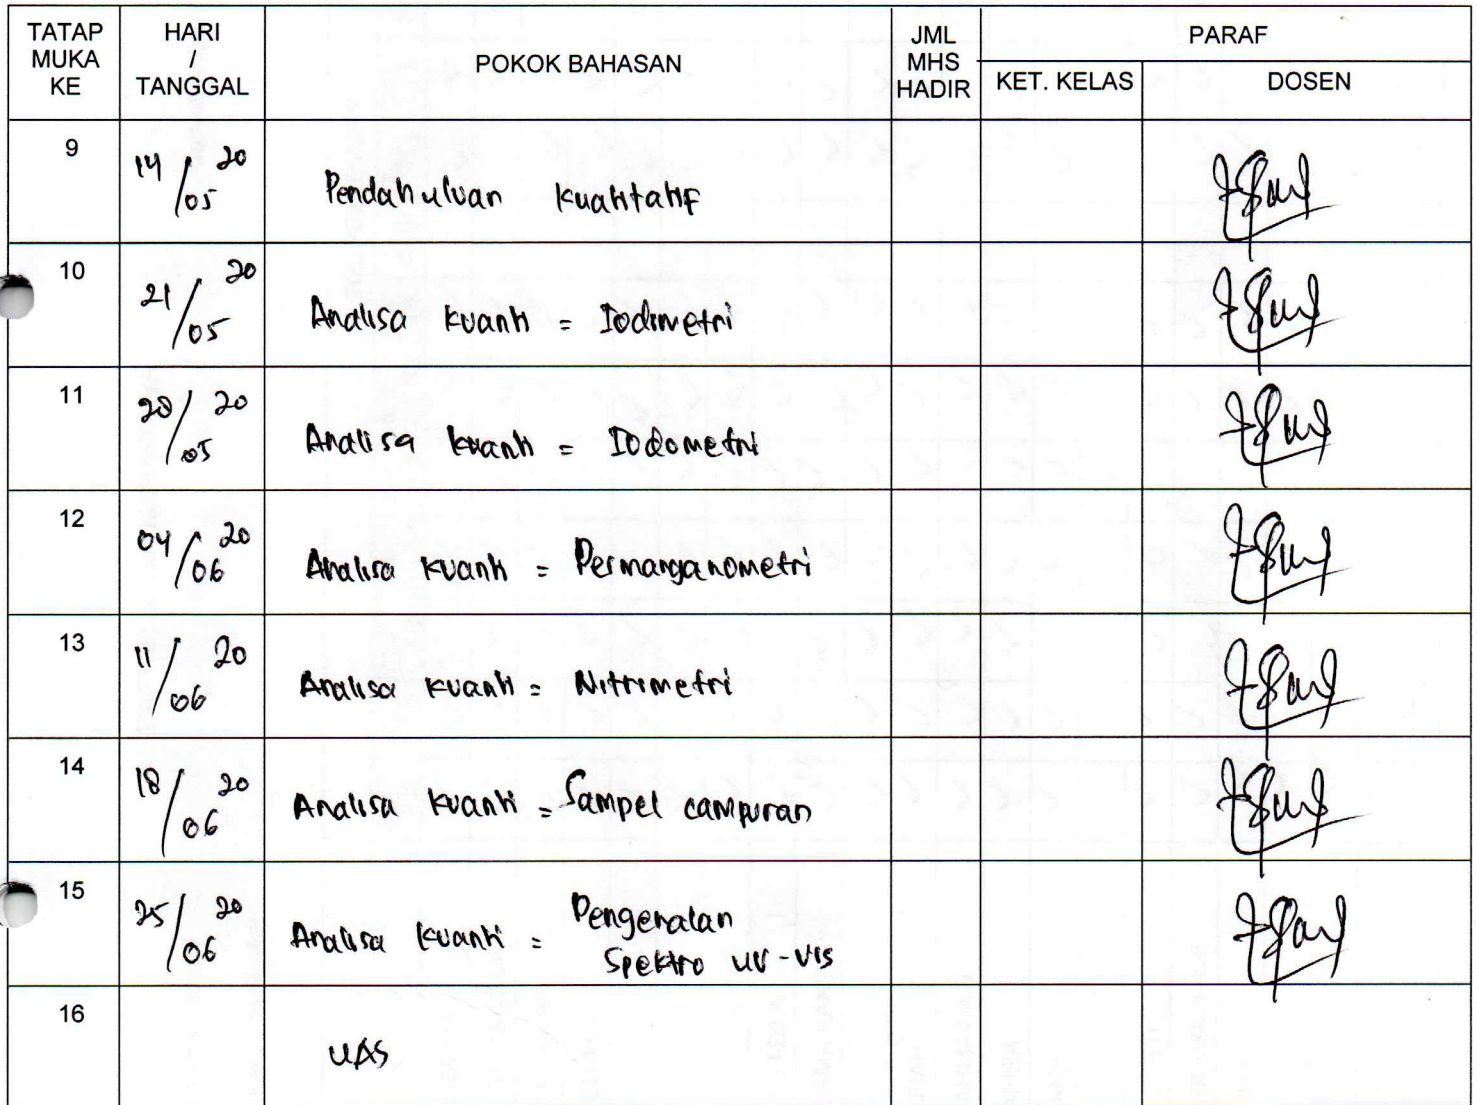 TATAP MUKA KE HARI / TANGGAL POKOK BAHASAN JML MHS HADIR PARAF
KET. KELAS DOSEN
9 14/05 20 Pendahuluan kuantitatif
10 21/05 20 Analisa kuanti = Iodimetri
11 28/05 20 Analisa kuanti = Iodometri
12 04/06 20 Analisa kuanti = Permanganometri
13 11/06 20 Analisa kuanti = Nitrimetri
14 18/06 20 Analisa kuanti = Sampel campuran
15 25/06 20 Analisa kuanti = Pengenalan
Spektro UV-Vis
16 UAS